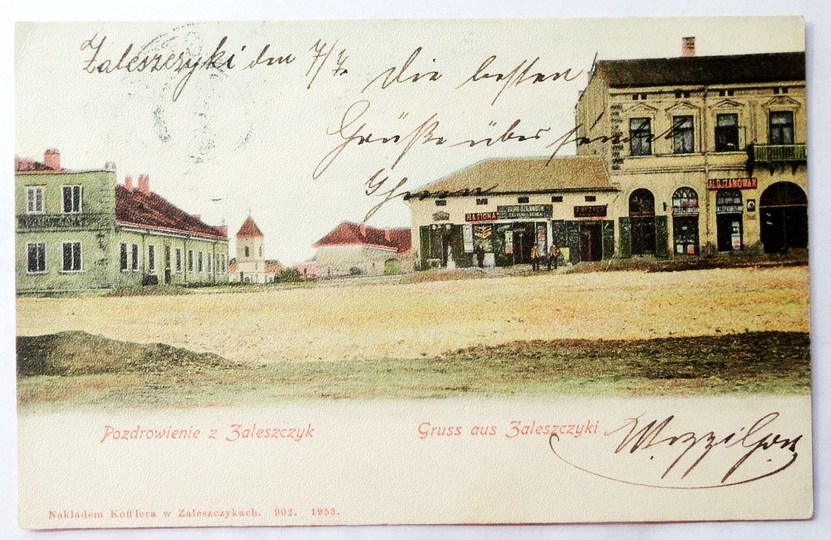 Zaleszczyki den 7/7.
Die besten
Grüße über sendet
Ihnen
NASIONA
Pozdrowienie z Zaleszczyk
Gruss aus Zaleszczyki
Nakładem Kofflera w Zaleszczykach. 902. 1953.